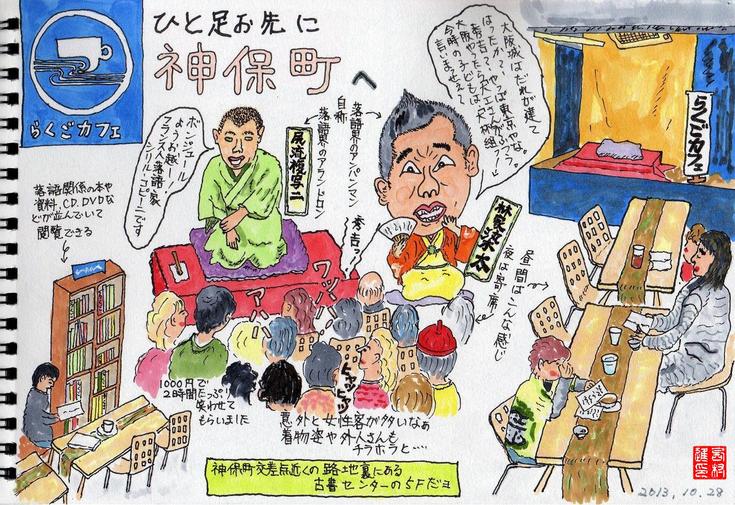 ひと足お先に
神保町へ
らくごカフェ
ボンジュール
ようお越し〜!
フランス人落語家
シリル・コピーニです
尻流複写二
落語界のアランドロン
自称
落語界のアンパンマン
大阪城はだれが建て
はったか?
秀吉?やっぱ東京やなァ。
大阪やったら大工さんが
今時の子どもは
言いまっせえ〜
林家染太
秀吉っ
らくごカフェ
落語関係の本や
資料、CD、DVDな
どが並んでいて
閲覧できる
昼間はこんな感じ
夜は寄席
ワハハ
アハハ
1000円で
2時間たっぷり
笑わせて
もらいました
意外と女性客が多いなぁ
着物姿や外人さんも
チラホラと…
神保町交差点近くの路地裏にある
古書センターの5Fだヨ
2013.10.28